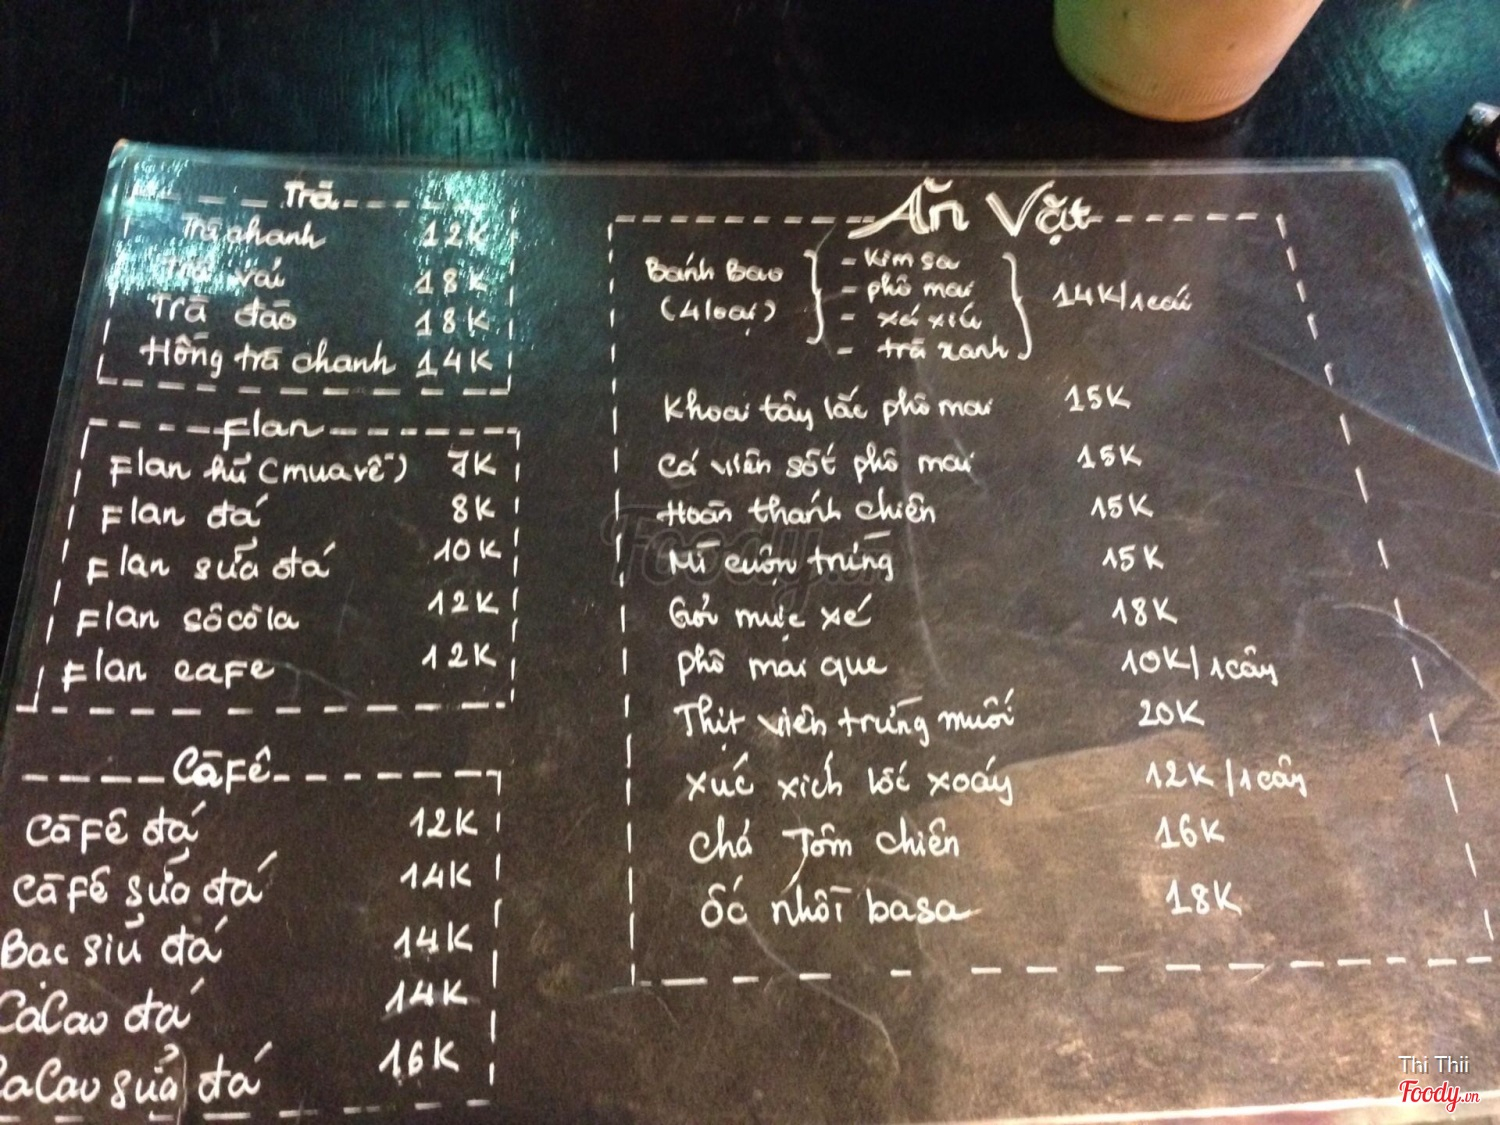 Trà
Trà chanh 12K
Trà vải 18K
Trà đào 18K
Hồng trà chanh 14K
Flan
Flan hủ (mua về) 7K
Flan đá 8K
Flan sữa đá 10K
Flan sôcôla 12K
Flan cafe 12K
Càfê
Càfê đá 12K
Càfê sữa đá 14K
Bạc siủ đá 14K
CaCao đá 14K
CaCao sữa đá 16K
Ăn Vặt
Bánh Bao (4 loại)
- Kim sa
- phô mai
- xá xíu
- trà xanh
14K/1cái
Khoai tây lắc phô mai 15K
Cá viên sốt phô mai 15K
Hoàn thánh chiên 15K
Mì cuộn trứng 15K
Gỏi mực xé 18K
phô mai que 10K/1cây
Thịt viên trứng muối 20K
Xúc xích lốc xoáy 12K/1cây
Chả Tôm chiên 16K
Ốc nhồi basa 18K
Foody.vn
Thi Thii
Foody.vn